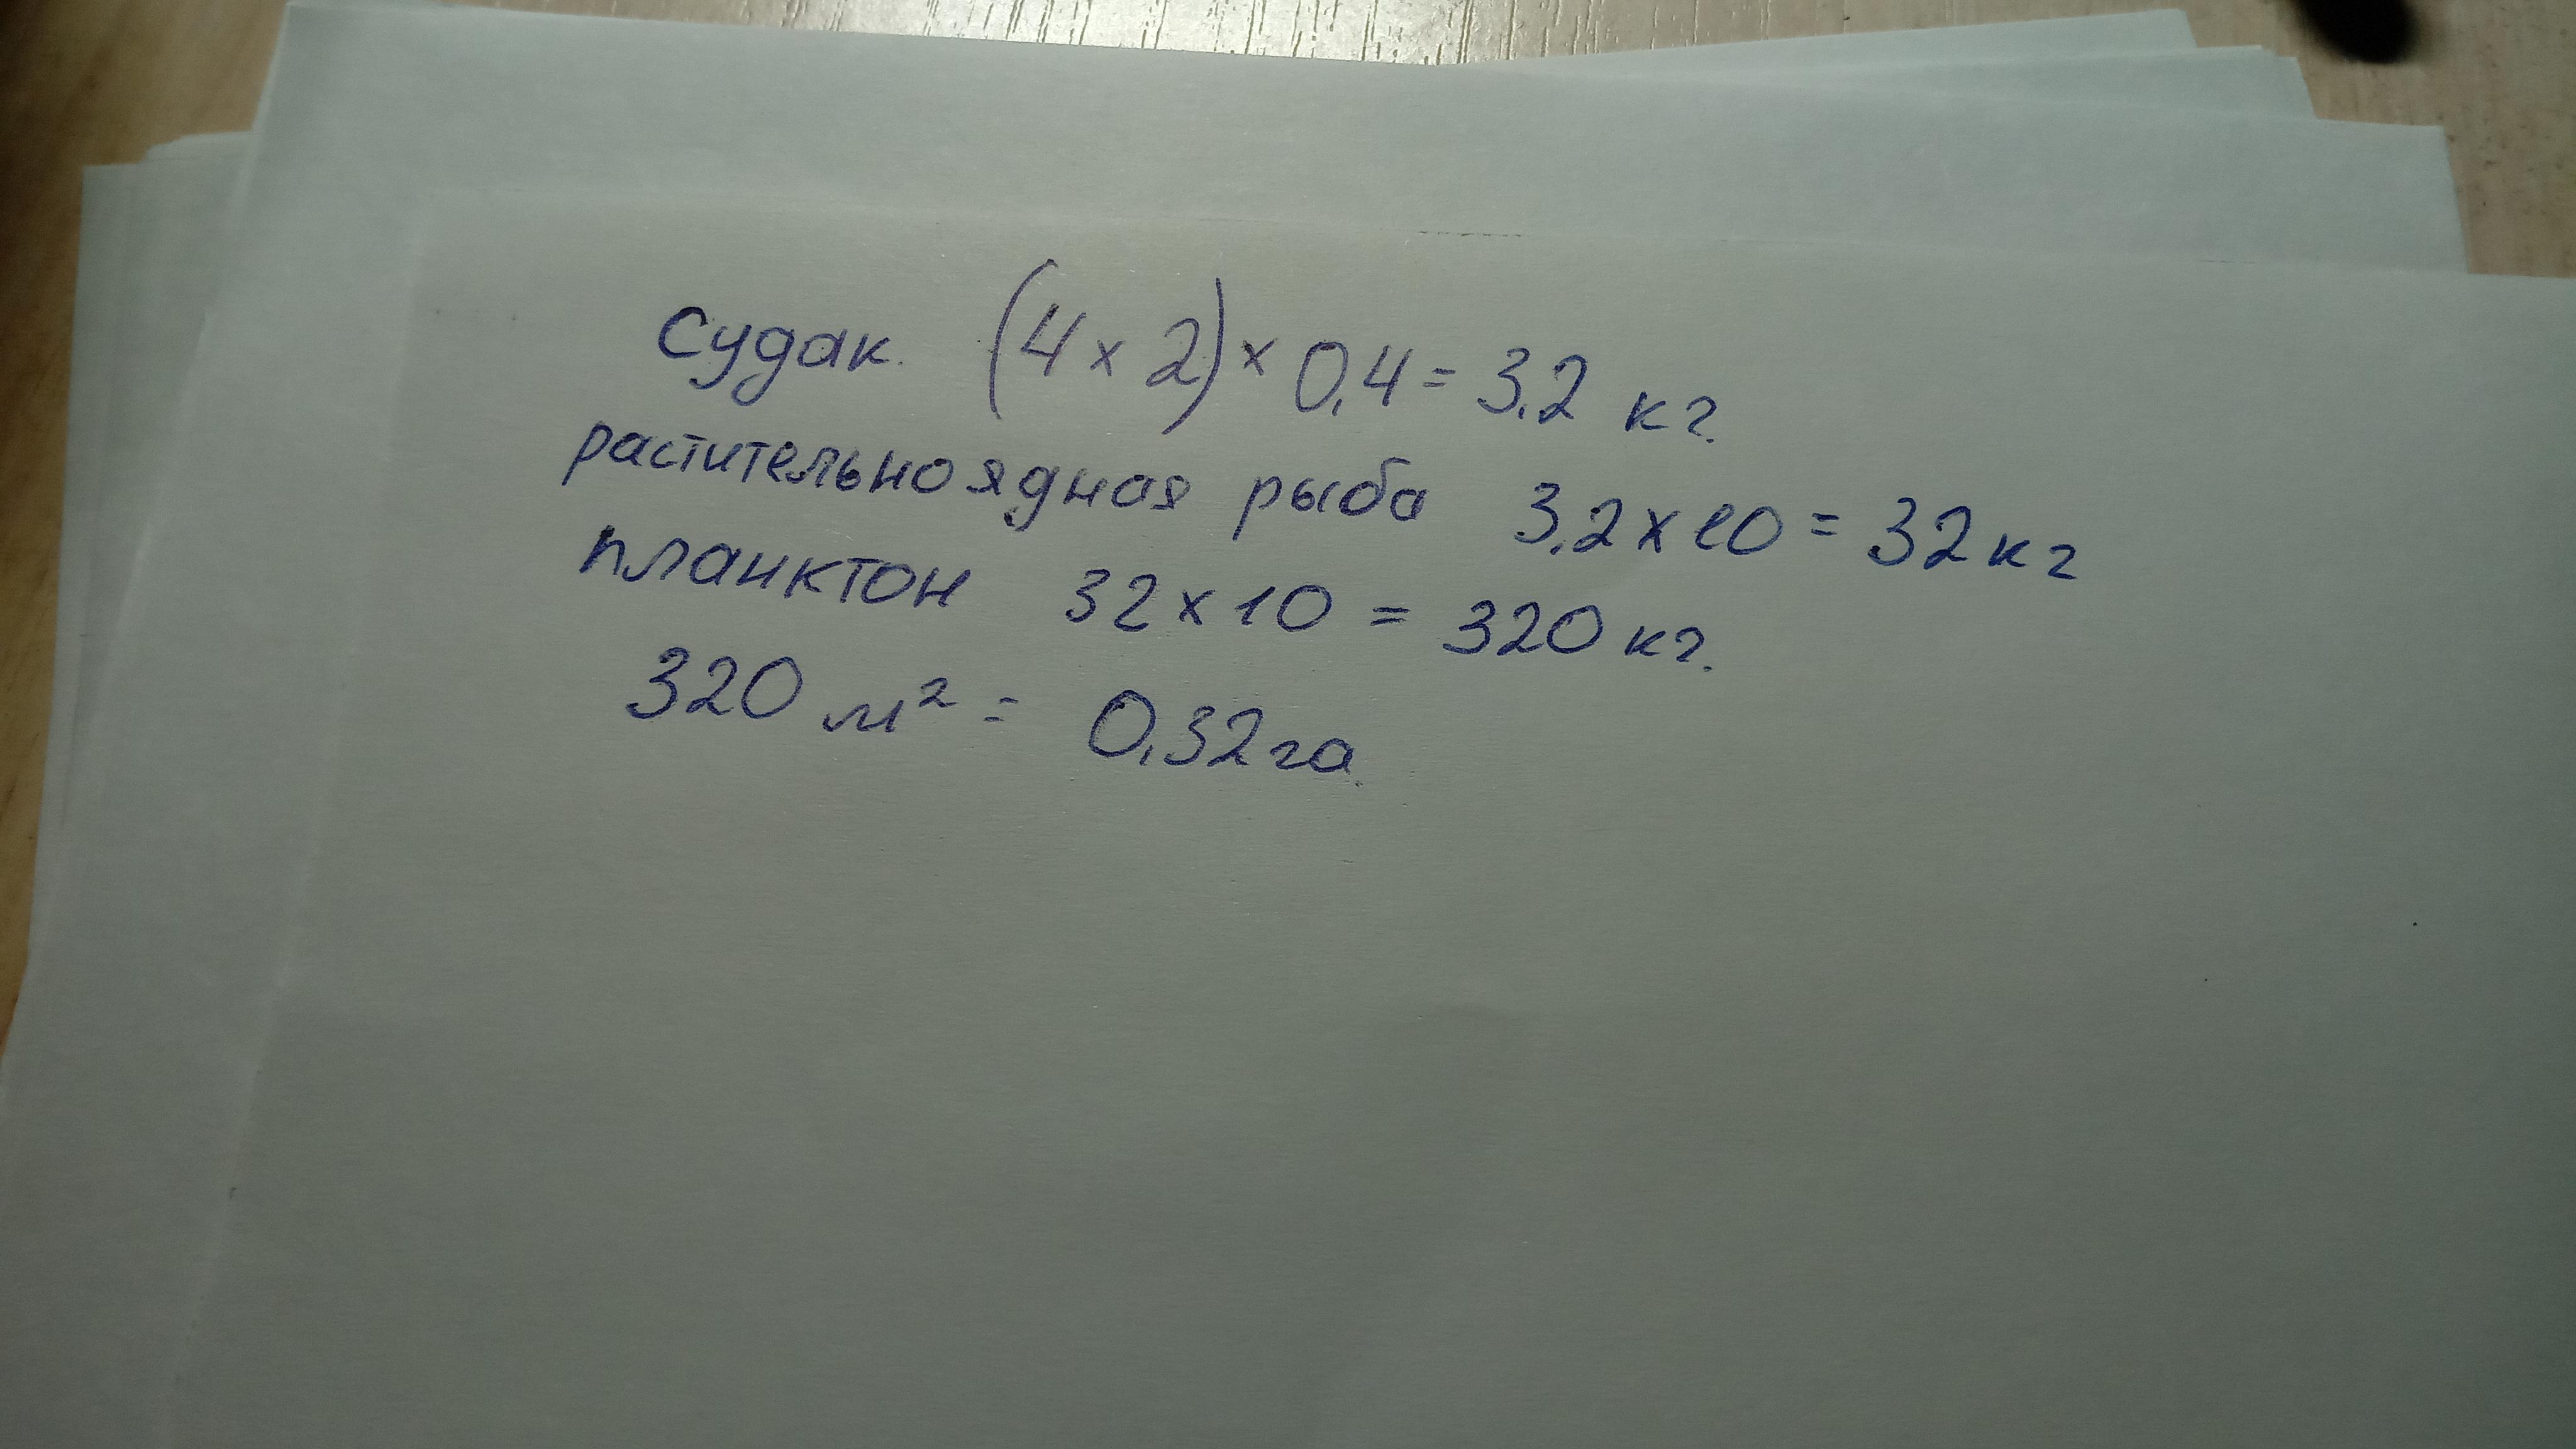 Судак. (4 х 2) х 0,4 = 3,2 кг.
растительноядная рыба 3,2 х 10 = 32 кг
планктон 32 х 10 = 320 кг.
320 м² = 0,32 га.